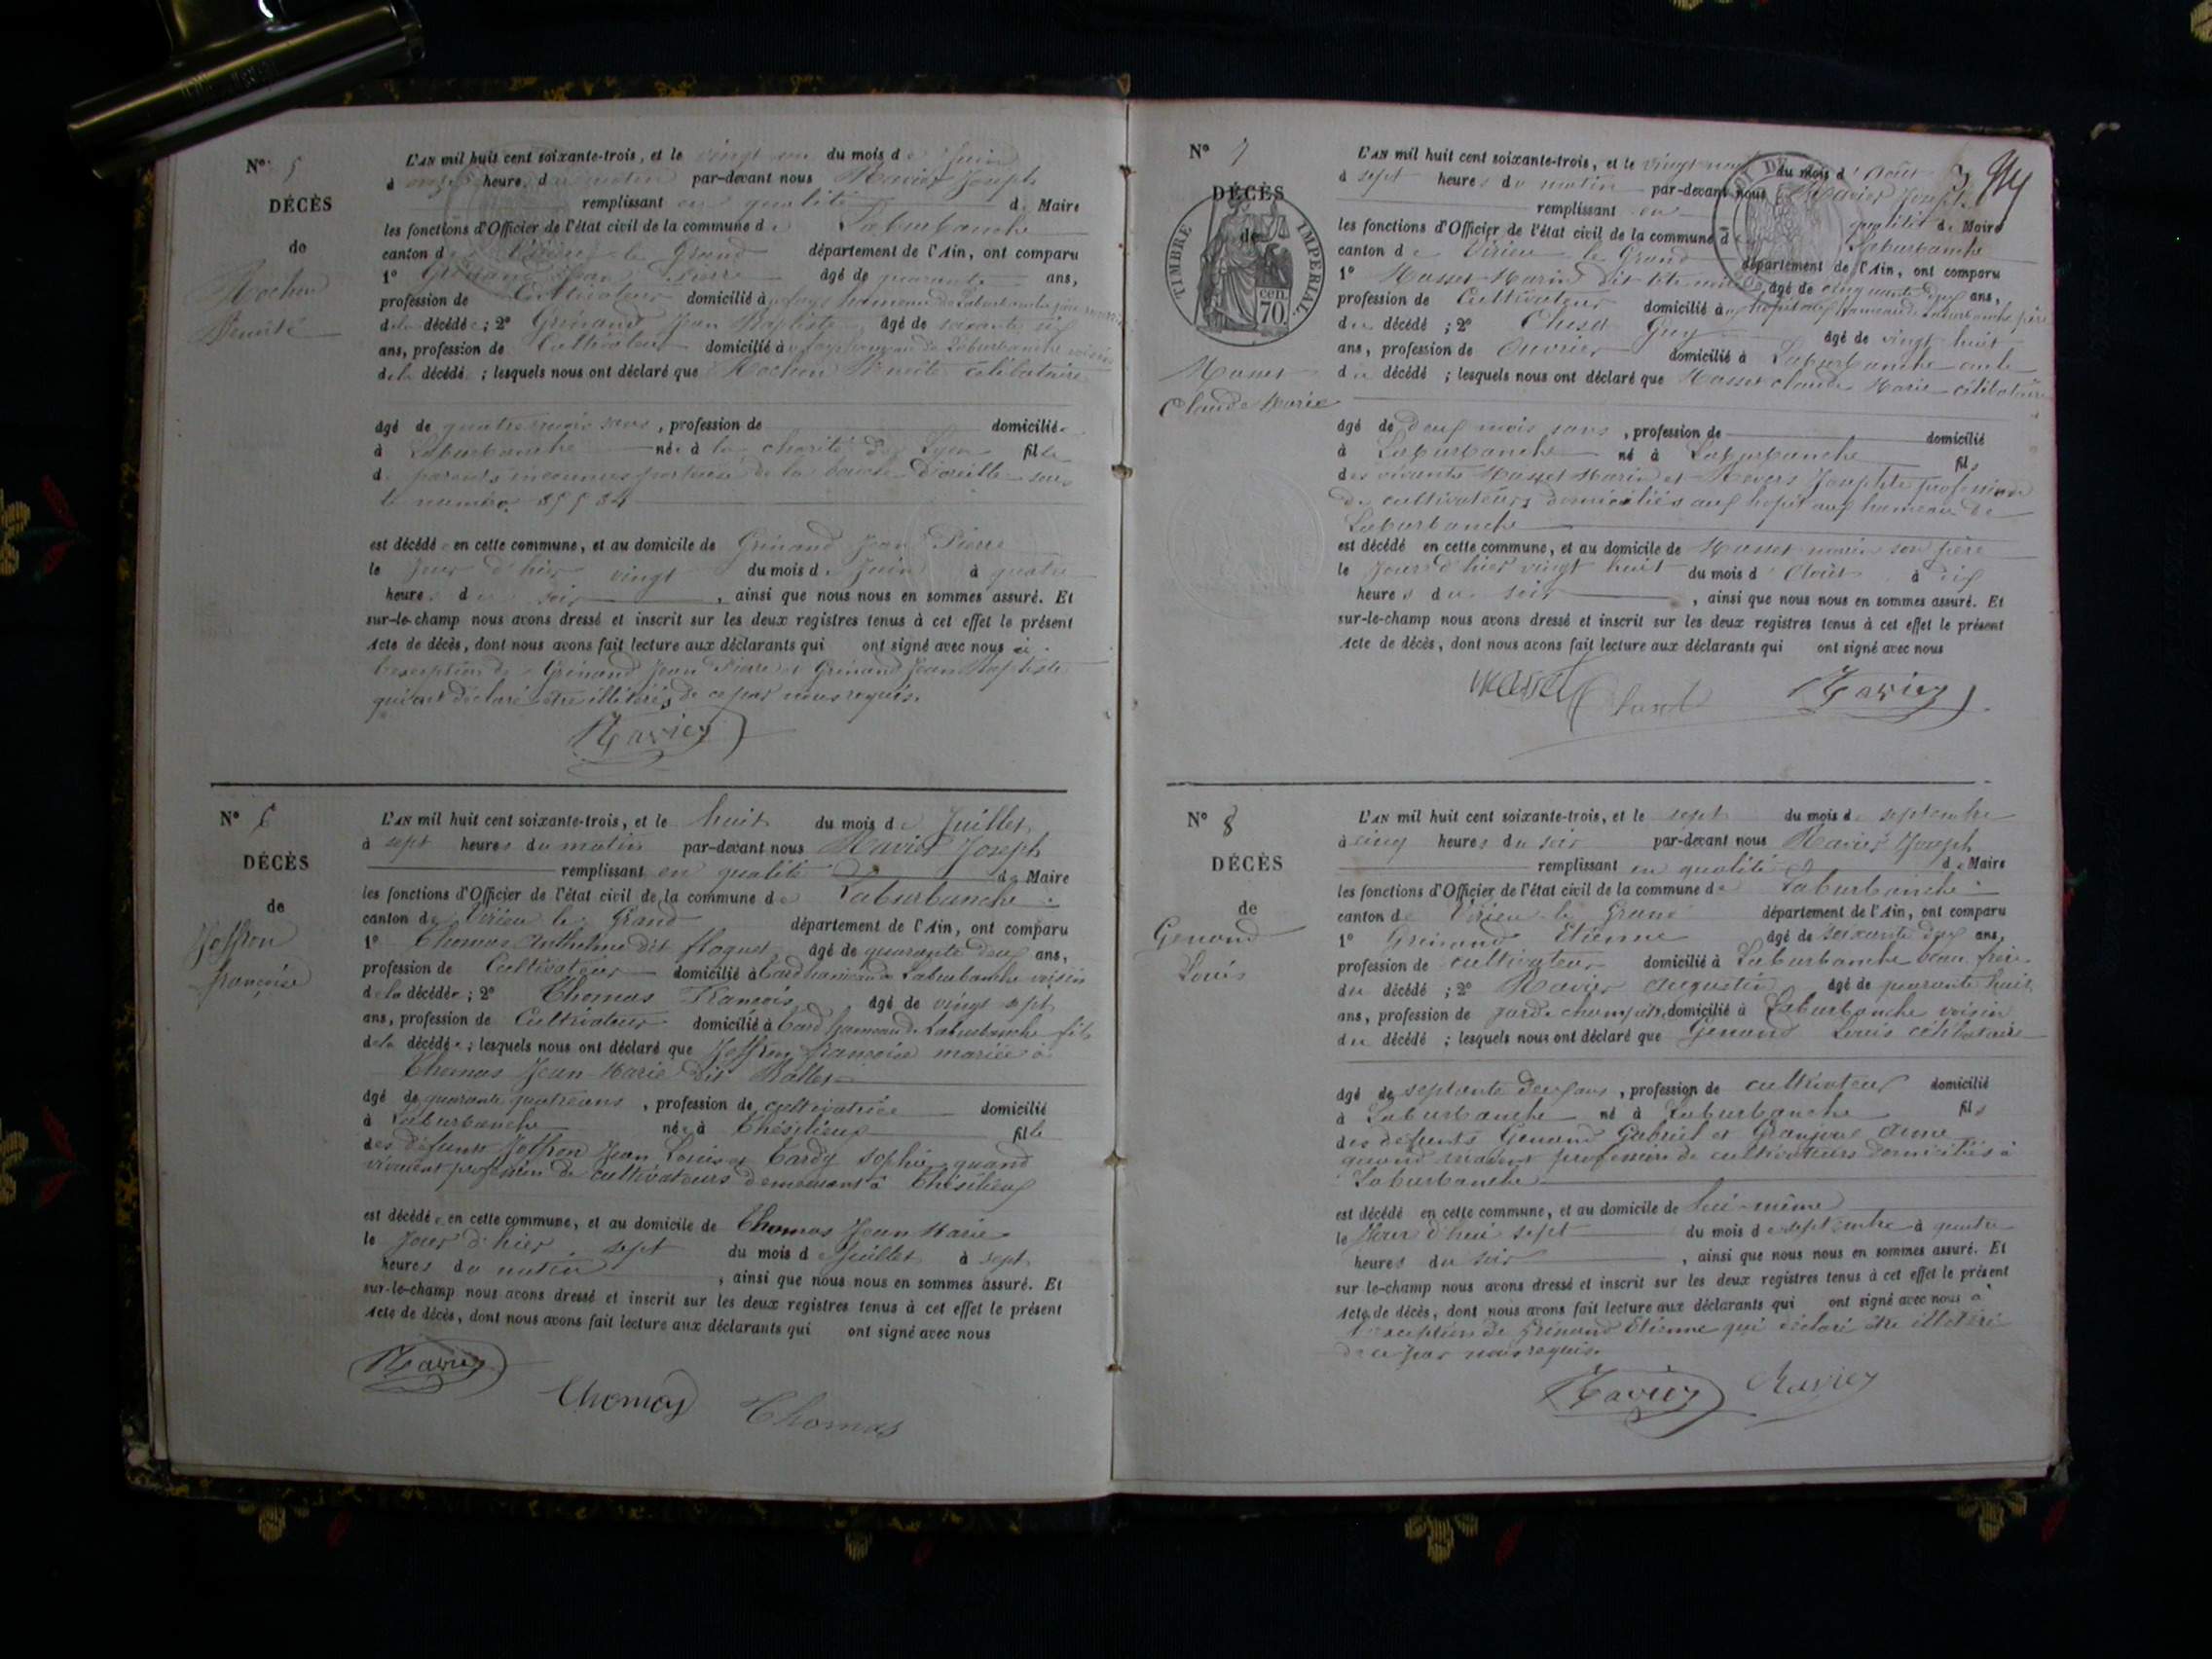 N° 5
DÉCÈS
de
Rochon
Benoite
L'AN mil huit cent soixante-trois, et le vingt un du mois de Juin
à onze heures du matin par-devant nous Ravier Joseph
remplissant en qualité de Maire
les fonctions d'Officier de l'état civil de la commune de Laburbanche
canton de Virieu le Grand département de l'Ain, ont comparu
1° Grinand Jean Pierre âgé de quarante ans,
profession de Cultivateur domicilié à hameau de Laburbanche
de la décédée ; 2° Grinand Jean Baptiste âgé de soixante six
ans, profession de Cultivateur domicilié à hameau de Laburbanche voisin
de la décédée ; lesquels nous ont déclaré que Rochon Benoite célibataire
âgé de quatre mois sans , profession de domiciliée
à Laburbanche née à la charité de Lyon fille
de parents inconnus porteuse de la boucle d'oreille sous
le numéro
est décédée en cette commune, et au domicile de Grinand Jean Pierre
le jour d'hier vingt du mois de Juin à quatre
heures du soir , ainsi que nous nous en sommes assuré. Et
sur-le-champ nous avons dressé et inscrit sur les deux registres tenus à cet effet le présent
Acte de décès, dont nous avons fait lecture aux déclarants qui ont signé avec nous à
l'exception de Grinand Jean Pierre et Grinand Jean Baptiste
qui ont déclaré être illétérés de ce par nous requis.
Ravier
N° 6
DÉCÈS
de
Joffron
françoise
L'AN mil huit cent soixante-trois, et le huit du mois de Juillet
à sept heures du matin par-devant nous Ravier Joseph
remplissant en qualité de Maire
les fonctions d'Officier de l'état civil de la commune de Laburbanche
canton de Virieu le Grand département de l'Ain, ont comparu
1° Thomas Anthelme dit floquet âgé de quarante deux ans,
profession de Cultivateur domicilié à hameau de Laburbanche voisin
de la décédée ; 2° Thomas François âgé de vingt sept
ans, profession de Cultivateur domicilié à hameau de Laburbanche fils
de la décédée ; lesquels nous ont déclaré que Joffron françoise mariée à
Thomas Jean Marie dit
âgé de quarante quatre ans , profession de cultivatrice domicilié
à Laburbanche née à Chésilieux fille
des défunts Joffron Jean Louis et Tardy Sophie quand
vivaient profession de cultivateurs demeurant à Chésilieux
est décédée en cette commune, et au domicile de Thomas Jean Marie
le jour d'hier sept du mois de Juillet à sept
heures du matin , ainsi que nous nous en sommes assuré. Et
sur-le-champ nous avons dressé et inscrit sur les deux registres tenus à cet effet le présent
Acte de décès, dont nous avons fait lecture aux déclarants qui ont signé avec nous
Ravier
Thomas Thomas
N° 7
DÉCÈS
de
TIMBRE IMPÉRIAL
70 cen.
Masset
Claude Marie
L'AN mil huit cent soixante-trois, et le vingt neuf du mois d'Août
à sept heures du matin par-devant nous Ravier Joseph
remplissant en qualité de Maire
les fonctions d'Officier de l'état civil de la commune de Laburbanche
canton de Virieu le Grand département de l'Ain, ont comparu
1° Masset Marin dit âgé de cinquante deux ans,
profession de Cultivateur domicilié à hameau de Laburbanche père
du décédé ; 2° Guy âgé de vingt huit
ans, profession de Ouvrier domicilié à Laburbanche oncle
du décédé ; lesquels nous ont déclaré que Masset Claude Marie célibataire
âgé de deux mois sans , profession de domicilié
à Laburbanche né à Laburbanche fils
des vivants Masset Marin et Josephte profession
de cultivateurs domiciliés aux hameau de
Laburbanche
est décédé en cette commune, et au domicile de Masset marin son père
le jour d'hier vingt huit du mois d'Août à dix
heures du soir , ainsi que nous nous en sommes assuré. Et
sur-le-champ nous avons dressé et inscrit sur les deux registres tenus à cet effet le présent
Acte de décès, dont nous avons fait lecture aux déclarants qui ont signé avec nous
Masset Ravier
N° 8
DÉCÈS
de
Genand
Louis
L'AN mil huit cent soixante-trois, et le sept du mois de septembre
à cinq heures du soir par-devant nous Ravier Joseph
remplissant en qualité de Maire
les fonctions d'Officier de l'état civil de la commune de Laburbanche
canton de Virieu le Grand département de l'Ain, ont comparu
1° Grinand Etienne âgé de soixante deux ans,
profession de cultivateur domicilié à Laburbanche beau frère
du décédé ; 2° Ravier Augustin âgé de quarante huit
ans, profession de garde champêtre domicilié à Laburbanche voisin
du décédé ; lesquels nous ont déclaré que Genand Louis célibataire
âgé de septante deux ans , profession de cultivateur domicilié
à Laburbanche né à Laburbanche fils
des défunts Genand Gabriel et Anne
quand vivaient profession de cultivateurs domiciliés à
Laburbanche
est décédé en cette commune, et au domicile de lui-même
le Jour d'hui sept du mois de septembre à quatre
heures du soir , ainsi que nous nous en sommes assuré. Et
sur-le-champ nous avons dressé et inscrit sur les deux registres tenus à cet effet le présent
Acte de décès, dont nous avons fait lecture aux déclarants qui ont signé avec nous à
l'exception de Grinand Etienne qui déclaré être illétéré
de ce par nous requis.
Ravier Ravier